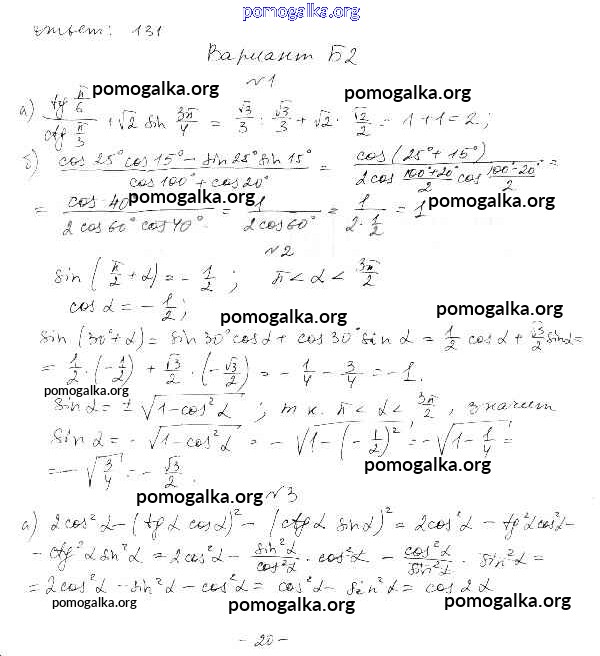 pomogalka.org
ответ: 131
Вариант Б2
№1
pomogalka.org pomogalka.org
а) (tg π/6)/(ctg π/3) + √2 sin 3π/4 = √3/3 : √3/3 + √2 · √2/2 = 1+1=2;
б) (cos 25° cos 15° - sin 25° sin 15°)/(cos 100° + cos 20°) = cos(25°+15°)/(2cos (100°+20°)/2 cos (100°-20°)/2) =
pomogalka.org pomogalka.org
= cos 40°/(2 cos 60° cos 40°) = 1/(2 cos 60°) = 1/(2·1/2) = 1
№2
sin (π/2 + α) = - 1/2 ; π < α < 3π/2
cos α = - 1/2 ;
pomogalka.org pomogalka.org
sin (30°+α) = sin 30° cos α + cos 30° sin α = 1/2 cos α + √3/2 sin α =
= 1/2 · (-1/2) + √3/2 · (-√3/2) = - 1/4 - 3/4 = -1.
pomogalka.org pomogalka.org
sin α = ± √(1-cos² α) ; т.к. π < α < 3π/2 , значит
sin α = - √(1-cos² α) = - √(1-(-1/2)²) = - √(1-1/4) =
= - √(3/4) = - √3/2.
pomogalka.org
№3
pomogalka.org pomogalka.org
а) 2cos² α - (tg α cos α)² - (ctg α sin α)² = 2cos² α - tg² α cos² α -
- ctg² α sin² α = 2cos² α - sin² α/cos² α · cos² α - cos² α/sin² α · sin² α =
= 2cos² α - sin² α - cos² α = cos² α - sin² α = cos 2α
pomogalka.org pomogalka.org pomogalka.org
- 20 -